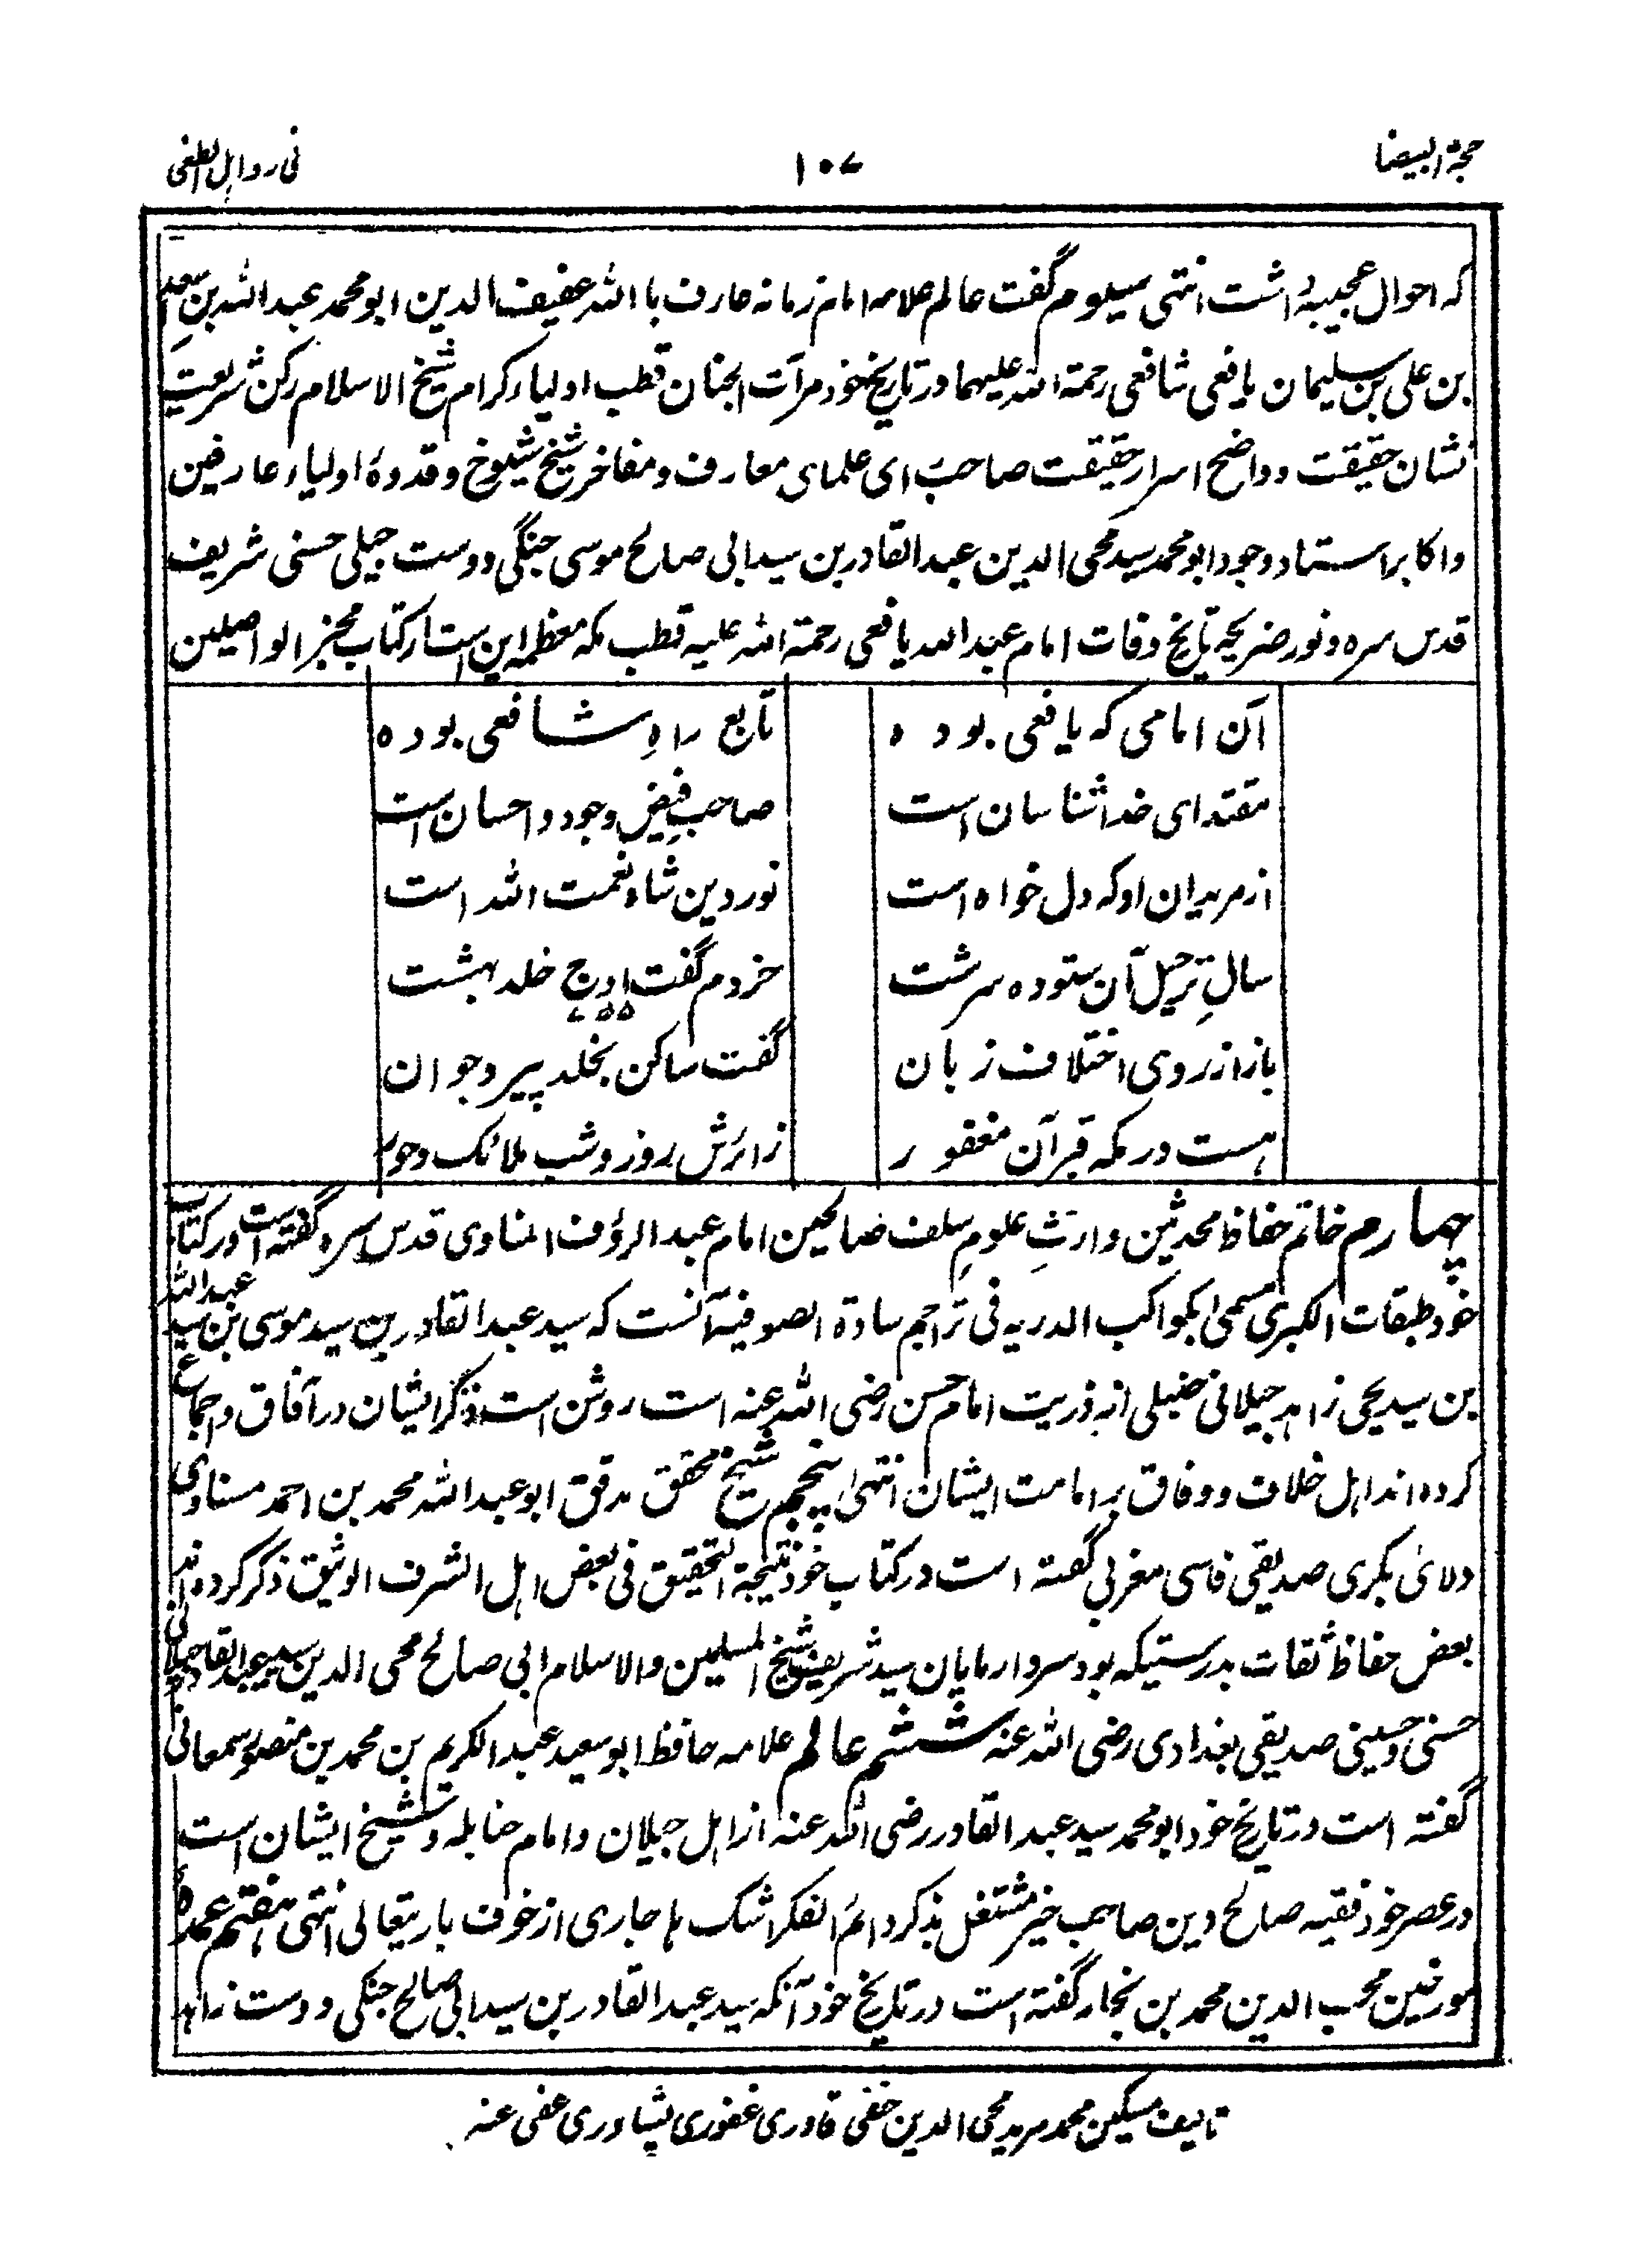 حجة البیضا
۱۰۷
فی رد اہل الطغی
که احوال عجیبه داشت انتهی سیلوم گفت عالم علامه امام زمانه عارف باالله عفیف الدین ابو محمد عبدالله بن سعد
بن علی بن سلیمان یافعی شافعی رحمة الله علیهما در تاریخ خود مرآت الجنان قطب اولیاء کرام شیخ الاسلام رکن شریعت
نشان حقیقت و واضح اسرار حقیقت صاحب ای علمای معارف و مفاخر شیخ شیوخ و قدوهٔ اولیاء عارفین
و اکابر استاد وجود ابو محمد سید محی الدین عبدالقادر بن سید ابی صالح موسی جنگی دوست جیلی حسنی شریف
قدس سره و نور ضریحه تاریخ وفات امام عبدالله یافعی رحمة الله علیه قطب مکه معظمه این است از کتاب مخبر الواصلین
آن امامی که یافعی بوده
تابع راهِ شافعی بوده
مقتدای خداشناسان است
صاحبِ فیض وجود و احسان است
از مریدان او که دل خواه است
نور دین شاه نعمت الله است
سالِ ترحیل آن ستوده سرشت
خردم گفت اوج خلد بهشت
باز از روی اختلاف زبان
گفت ساکن بخلد پیر و جوان
هست در مکه قبر آن مغفور
زائرش روز و شب ملائک و حور
چهارم خاتم حفاظ محدثین وارثِ علومِ سلف صالحین امام عبدالرؤف المناوی قدس سره گفته است در کتاب
خود طبقات الکبری مسمی بکواکب الدریه فی تراجم سادة الصوفیة آنست که سید عبدالقادر بن سید موسی بن سید عبدالله
بن سید یحی زاهد جیلانی حنبلی از ذریت امام حسن رضی الله عنه است روشن است ذکر ایشان در آفاق و اجماع
کرده اند اہل خلاف و وفاق بر امامت ایشان انتهیٰ پنجم شیخ محقق مدقق ابو عبدالله محمد بن احمد مسناوی
دلائی بکری صدیقی فاسی مغربی گفته است در کتاب خود نتیجة التحقیق فی بعض اہل الشرف الوثیق ذکر کرده اند
بعض حفاظ ثقات بدرستیکه بود سردار مایان سید شریف شیخ المسلمین والاسلام ابی صالح محی الدین سید عبدالقادر جیلانی
حسنی و حسینی صدیقی بغدادی رضی الله عنه ششم عالم علامه حافظ ابو سعید عبدالکریم بن محمد بن منصور سمعانی
گفته است در تاریخ خود ابو محمد سید عبدالقادر رضی الله عنه از اہل جیلان و امام حنابله و شیخ ایشان است
در عصر خود فقیه صالح دین صاحب خیر مشتغل بذکر دائم الفکر اشک ہا جاری از خوف باریتعالی انتهی ہفتم عمدهٔ
مورخین محب الدین محمد بن نجار گفته است در تاریخ خود آنکه سید عبدالقادر بن سید ابی صالح جنگی دوست زاہد
تالیف مسکین محمد مرید محی الدین حنفی قادری غفوری پشاوری عفی عنه